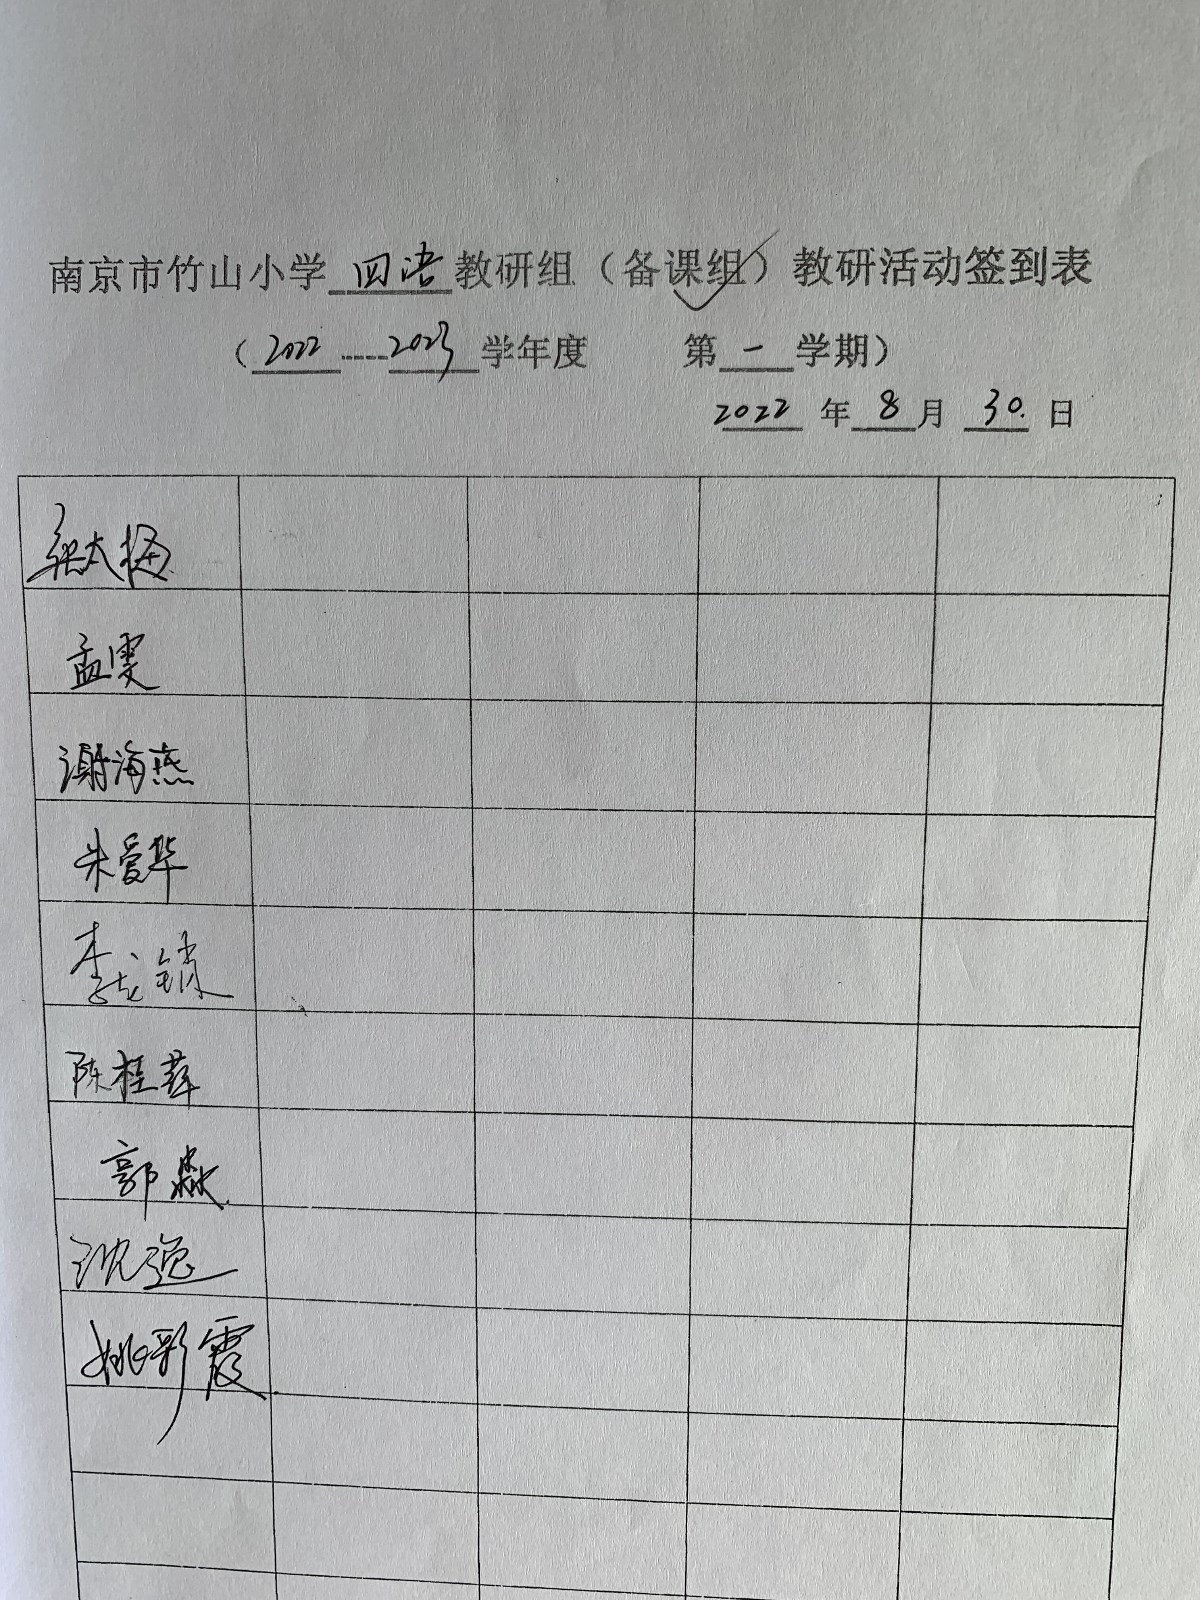 南京市竹山小学 四语 教研组（备课组）教研活动签到表
（2022----2023学年度 第一学期）
2022 年 8 月 30. 日
孟雯
谢海燕
朱爱华
李龙锁
陈桂萍
郭淼
沈逸
姚彩霞